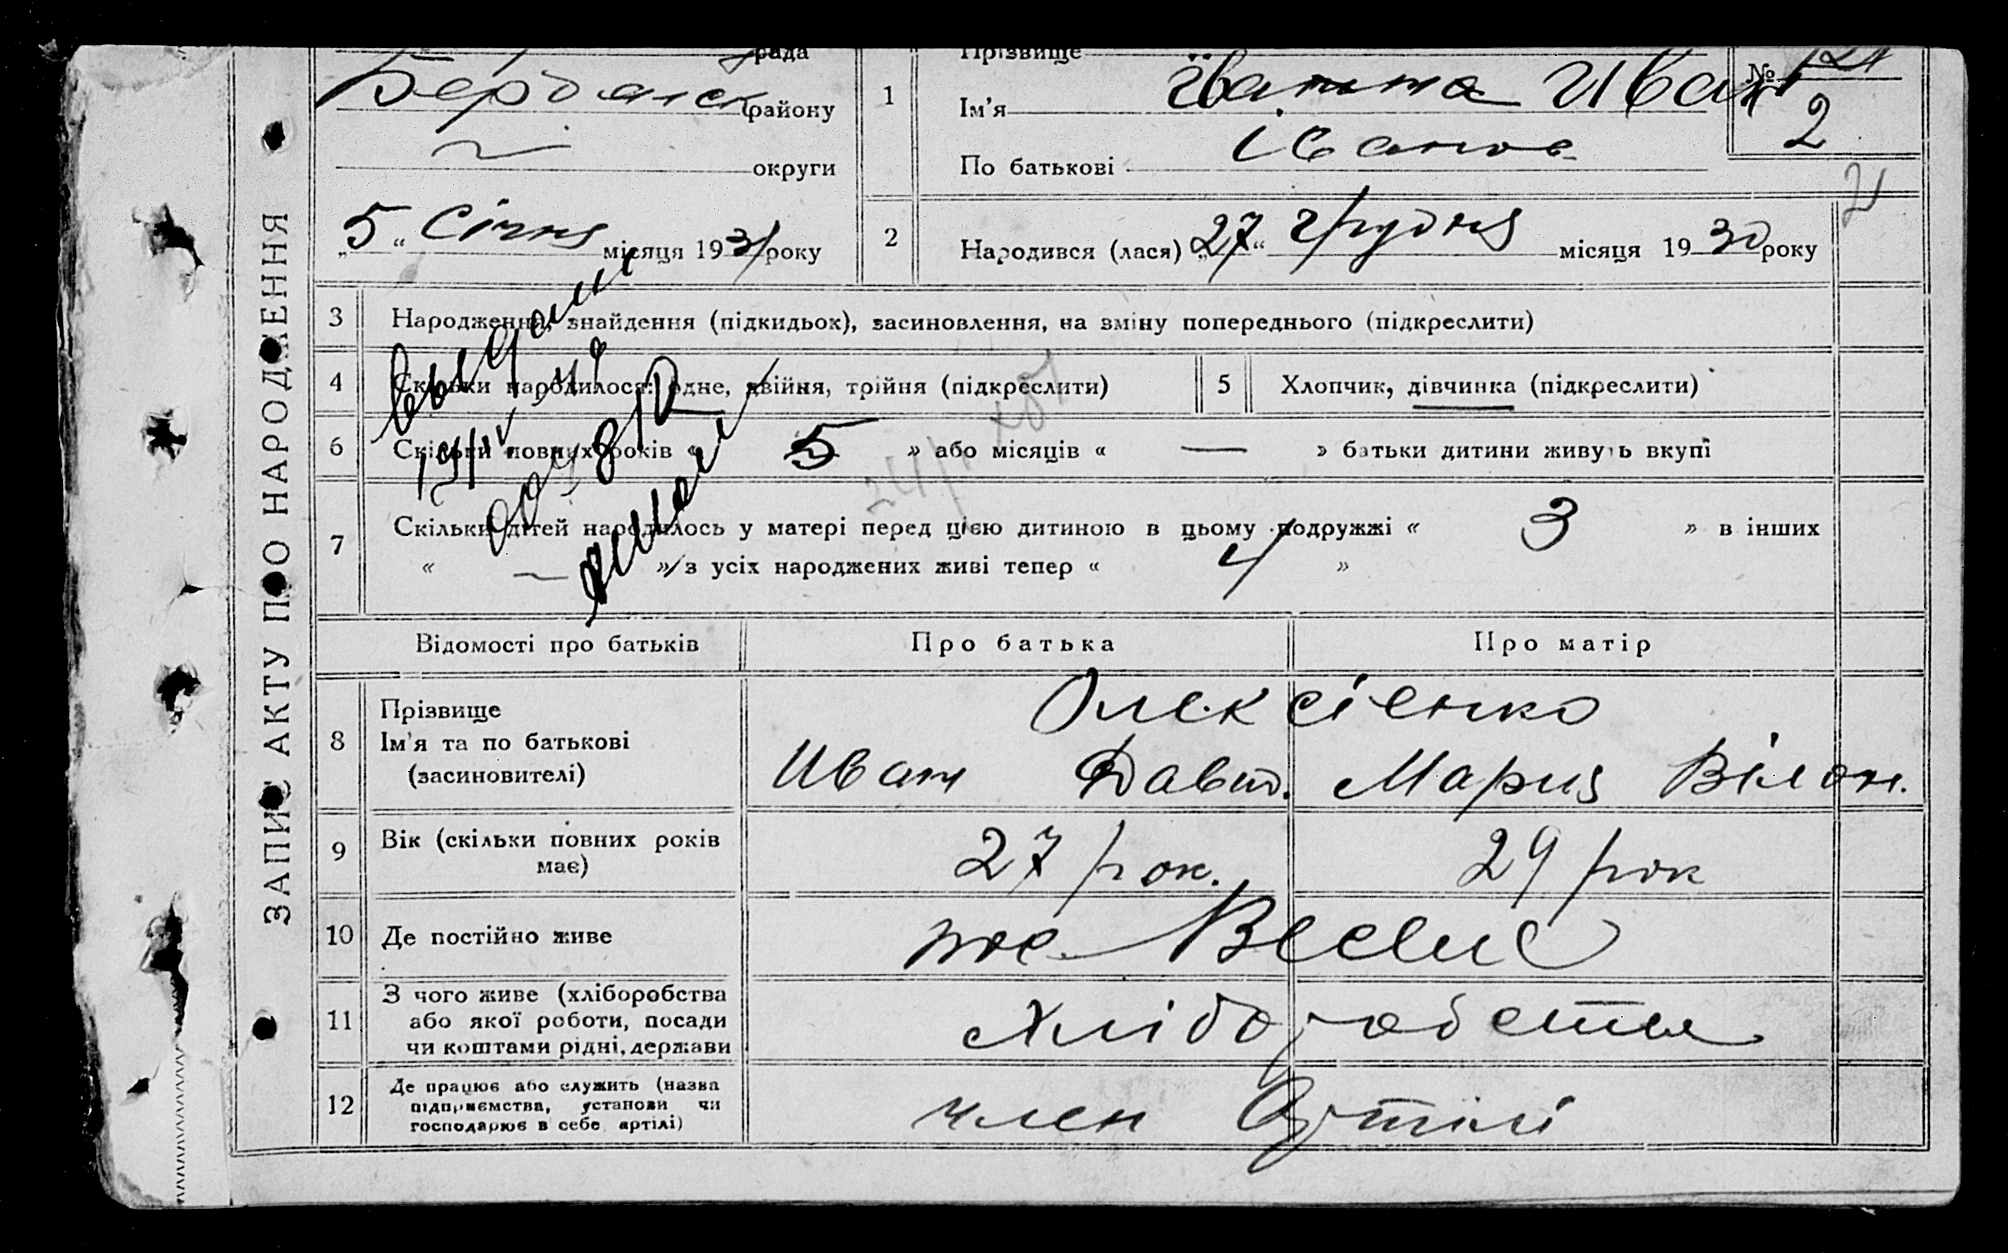 ЗАПИС АКТУ ПРО НАРОДЖЕННЯ
рада
Бердянськ району
округи
5 “ Січня місяця 1931 року
1
Прізвище
Ім’я Іван
По батькові Іванов.
№ 124
2
2 Народився (лася) „ 27 “ грудня місяця 1930 року
3 Народження, знайдення (підкидьок), засиновлення, на зміну попереднього (підкреслити)
4 Скільки народилося: одне, двійня, трійня (підкреслити)
5 Хлопчик, дівчинка (підкреслити)
6 Скільки повних років « 5 » або місяців « — » батьки дитини живуть вкупі
7 Скільки дітей народилось у матері перед цією дитиною в цьому подружжі « 3 » в інших
« — » з усіх народжених живі тепер « 4 »
Відомості про батьків Про батька Про матір
8 Прізвище
Ім’я та по батькові
(засиновителі)
Олексієнко
Иван Давид. Мария
9 Вік (скільки повних років
має)
27 рок. 29 рок
10 Де постійно живе
пос.
11 З чого живе (хліборобства
або якої роботи, посади
чи коштами рідні, держави
хліборобства
12 Де працює або служить (назва
підприємства, установи чи
господарює в себе артілі)
член Артілі